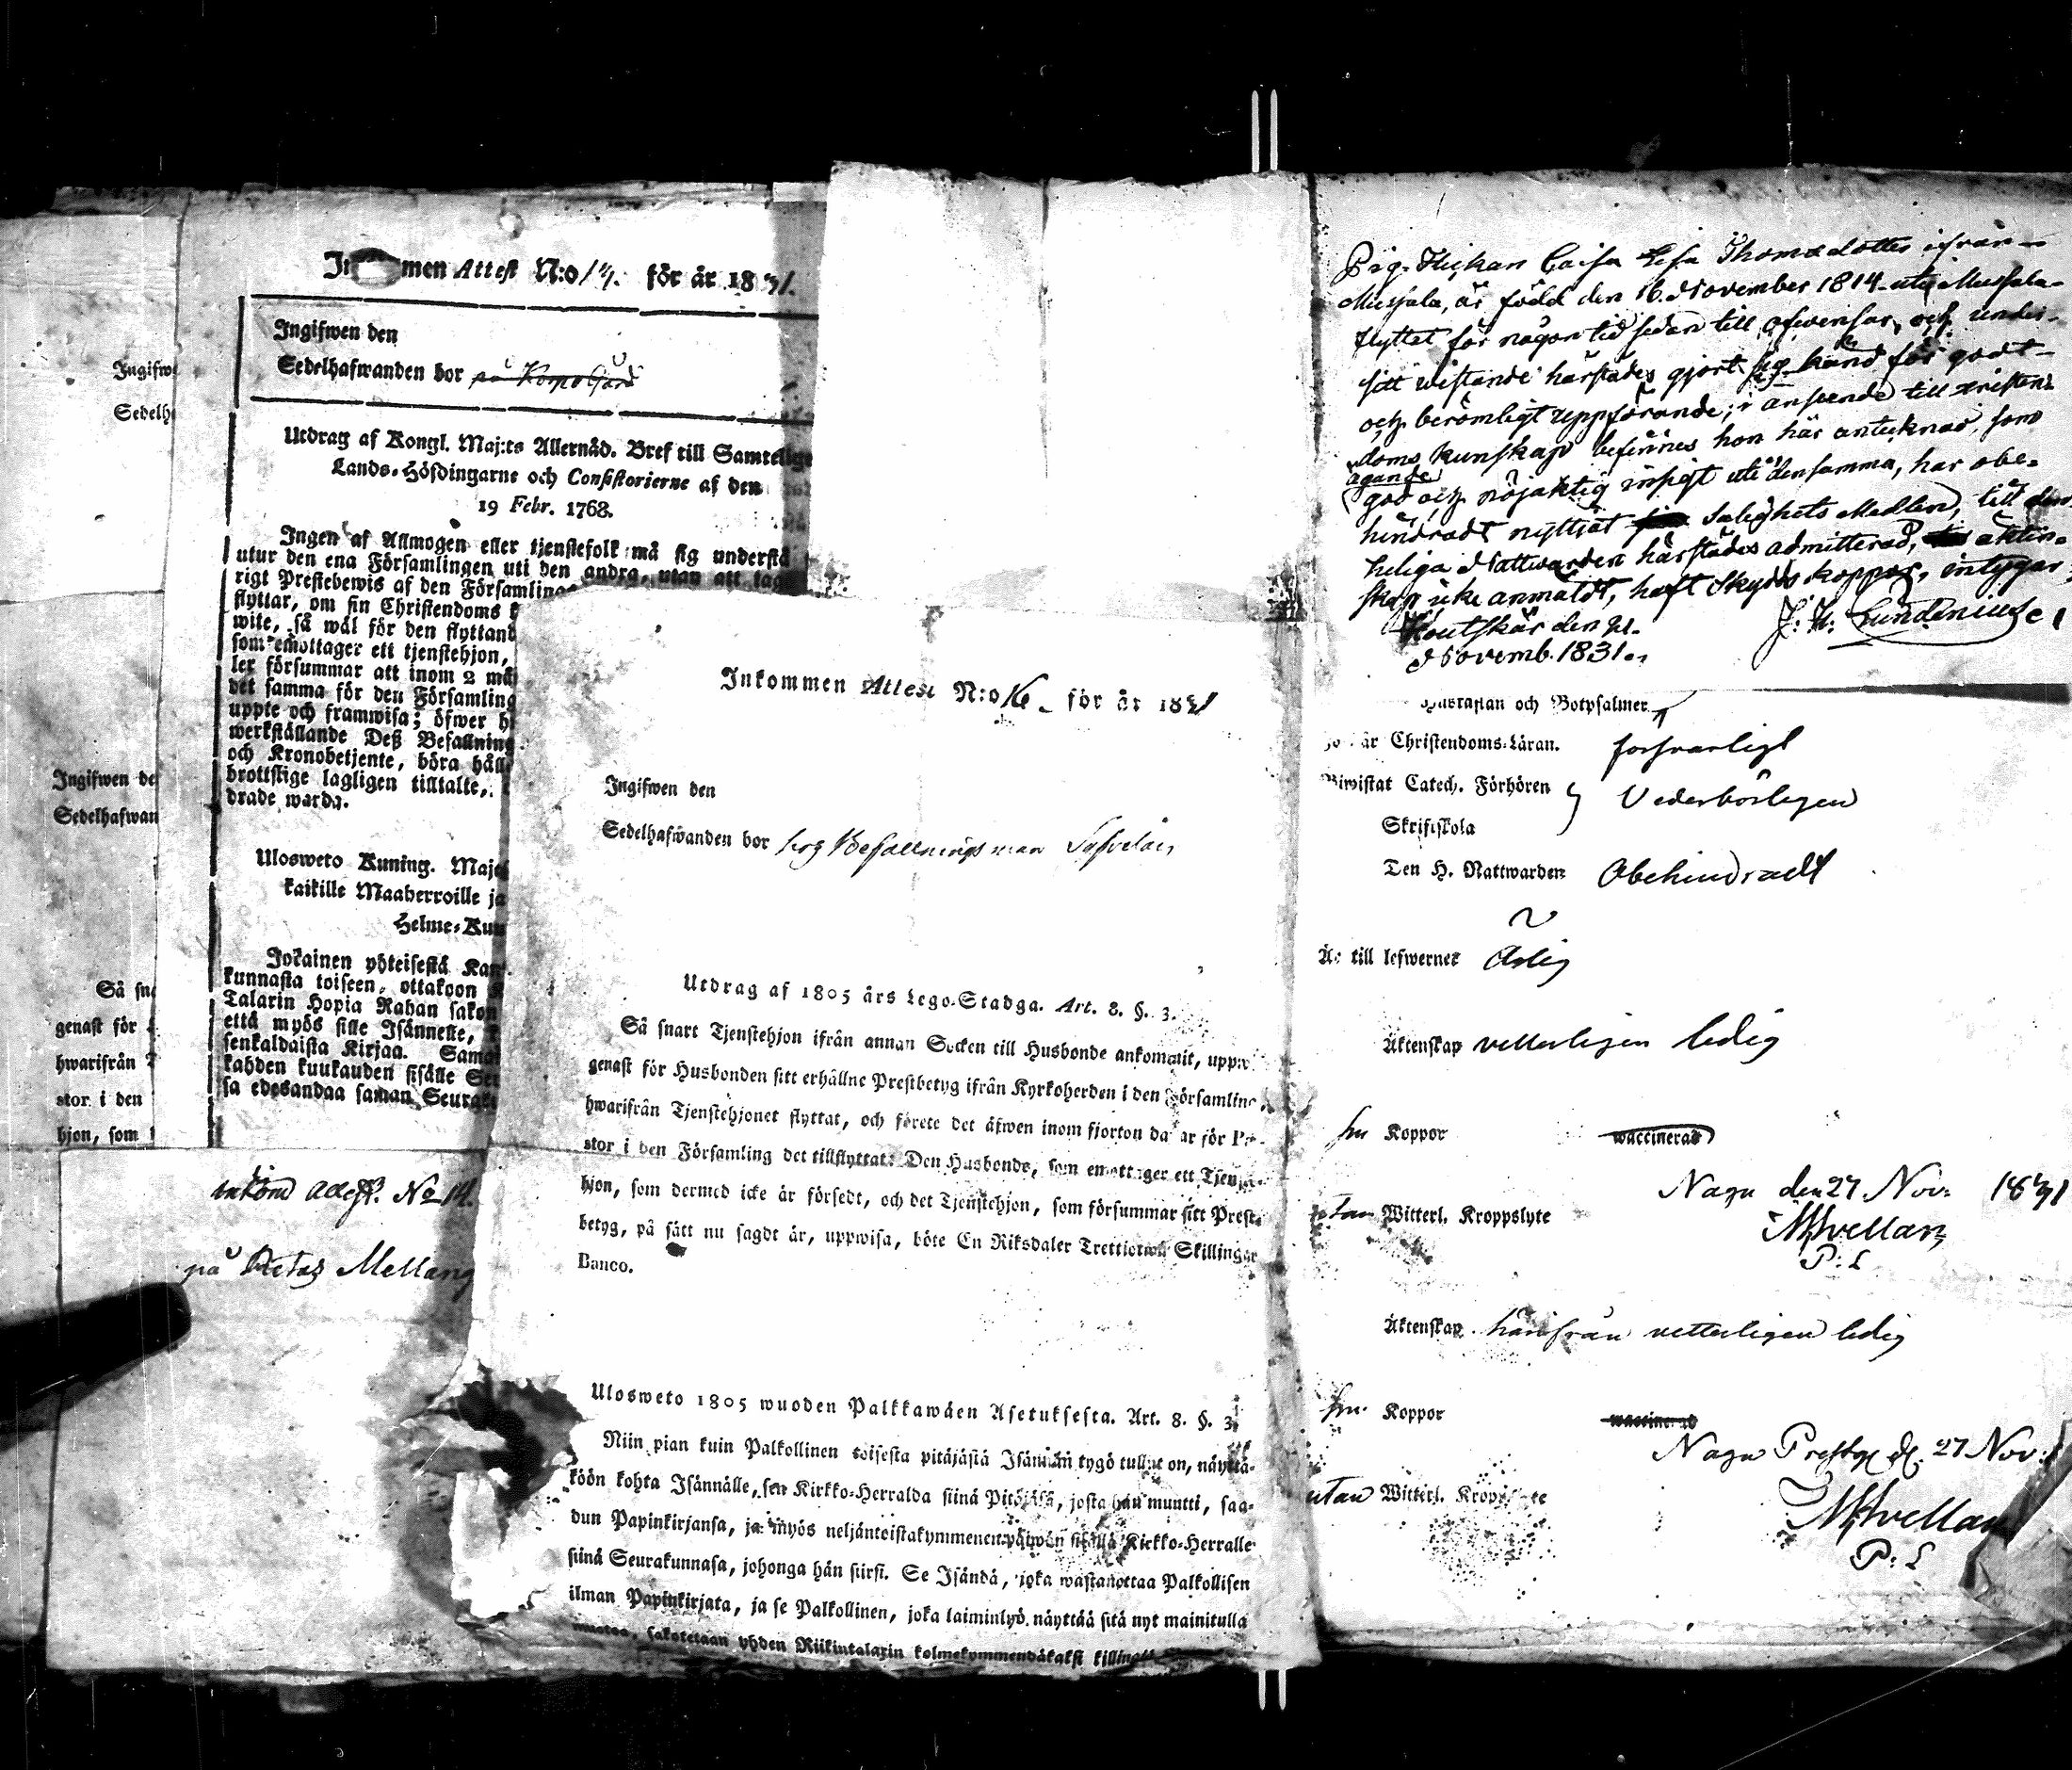 Ingifwe
Sedelh
Ingifwen de
Sedelhafwan
Så sna
genast för
hwarifrån
stor i den
hjon, som
men Attest N:o för år 1831.
Ingifwen den
Sedelhafwanden bor på
Utdrag af Kongl. Maj:ts Allernåd. Bref till Samtelige
Lands-Höfdingarne och Consistorierne af den
19 Febr. 1768.
Ingen af Allmogen eller tjenstefolk må sig understå
utur den ena Församlingen uti den andra, utan att tag
rigt Prestebewis af den Församling
flyttar, om sin Christendoms
wite, så wäl för den flyttand
som emottager ett tjenstehjon,
ler försummar att inom 2 må
det samma för den Församling
uppte och framwisa; öfwer h
werkställande Deß Befallning
och Kronobetjente, böra håll
brottslige lagligen tilltalte,
drade warda.
Ulosweto Kuning. Maje
kaikille Maaherroille ja
Helme-Kuu
Jokainen yhteisestä Kan
kunnasta toiseen, ottakoon
Talarin Hopia Rahan sakon
että myös sille Isännelle,
senkaldaista Kirjaa. Sama
kahden kuukauden sisälle Se
sa edesandaa saman Seurak
inkom Attest. No 14.
på Mellang
Inkommen Attest N:o 16 för år 1831
Ingifwen den
Sedelhafwanden bor hos Befallningsman
Utdrag af 1805 års Lego-Stadga. Art. 8. §. 3.
Så snart Tjenstehjon ifrån annan Socken till Husbonde ankommit, uppwi
genast för Husbonden sitt erhållne Prestbetyg ifrån Kyrkoherden i den Församling,
hwarifrån Tjenstehjonet flyttat, och förete det äfwen inom fjorton dagar för Pa-
stor i den Församling det tillflyttat: Den Husbonde, som emottager ett Tjenste-
hjon, som dermed icke är försedt, och det Tjenstehjon, som försummar sitt Prest-
betyg, på sätt nu sagdt är, uppwisa, böte En Riksdaler Trettiotwå Skillingar
Banco.
Ulosweto 1805 wuoden Palkkawäen Asetuksesta. Art. 8. §. 3.
Niin pian kuin Palkollinen toisesta pitäjästä Isännän tygö tullut on, näyttä-
köön kohta Isännälle, sen Kirkko-Herralda siinä Pitäjäsä, josta hän muutti, saa-
dun Papinkirjansa, ja myös neljäntoistakymmenen päiwän sisällä Kirkko-Herralle
siinä Seurakunnasa, johonga hän siirsi. Se Isändä, joka wastanottaa Palkollisen
ilman Papinkirjata, ja se Palkollinen, joka laiminlyö näyttää sitä nyt mainitulla
muotoa, sakotetaan yhden Riikintalarin kolmekymmendäkaksi killingi
Pig. Flickan Caisa Lisa Thomsdotter ifrån
Mussala, är född den 16. November 1814 uti Mussala
flyttet för någon tid sedan till och under
sitt wistande härstädes gjort sig känd för godt
och berömligt uppförande; i anseende till Kristen-
doms kunskap befinnes hon här antecknad, som
ägande
god och nöjaktig insigt uti densamma, har obe-
hindradt nyttjat Salighets Medlen, till den
heliga Nattwarden härstädes admitterad, äkten-
skap icke anmäldt, haft Skyddskoppor, intygar
Houtskär den 21.
Novemb. 1831.
J: H: Lundenius
Hustaflan och Botpsalmer
Christendoms-Läran. försvarligt
Biwistat Catech. Förhören
Skriftskola
Vederbörligen
Den H. Nattwarden Obehindradt
Är till lefwernet Ärlig
Äktenskap vetterligen ledig
Koppor waccinerad
Nagu den 27 Nov: 1831
utan Witterl. Kroppslyte
P: L
Äktenskap härifrån vetterligen ledig
Koppor waccinerad
Nagu Prestg d. 27 Nov:
utan Witterl. Kroppslyte
P: L